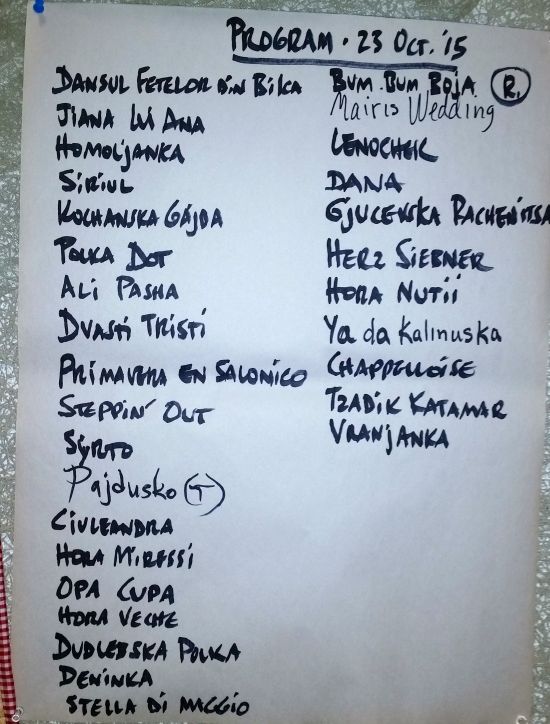 PROGRAM. 23 OCT. '15
DANSUL FETELOR DIN BILCA
JIANA LUI ANA
HOMOLJANKA
SIRIUL
KOCHANSKA GAJDA
POLKA DOT
ALI PASHA
DVASTI TRISTI
PRIMAVERA EN SALONICO
STEPPIN' OUT
SYRTO
Pajdusko (T)
CIULEANDRA
HORA MIRESSI
OPA CUPA
HORA VECHE
DUDLEBSKA POLKA
DENINKA
STELLA DI MAGGIO
BUM. BUM. BOJA. R.
Mairis Wedding
LENOCHEK
DANA
GJUCEVSKA RACHENITSA
HERZ SIEBNER
HORA NUTII
Ya da Kalinuska
CHAPPELLOISE
TZADIK KATAMAR
VRANJANKA